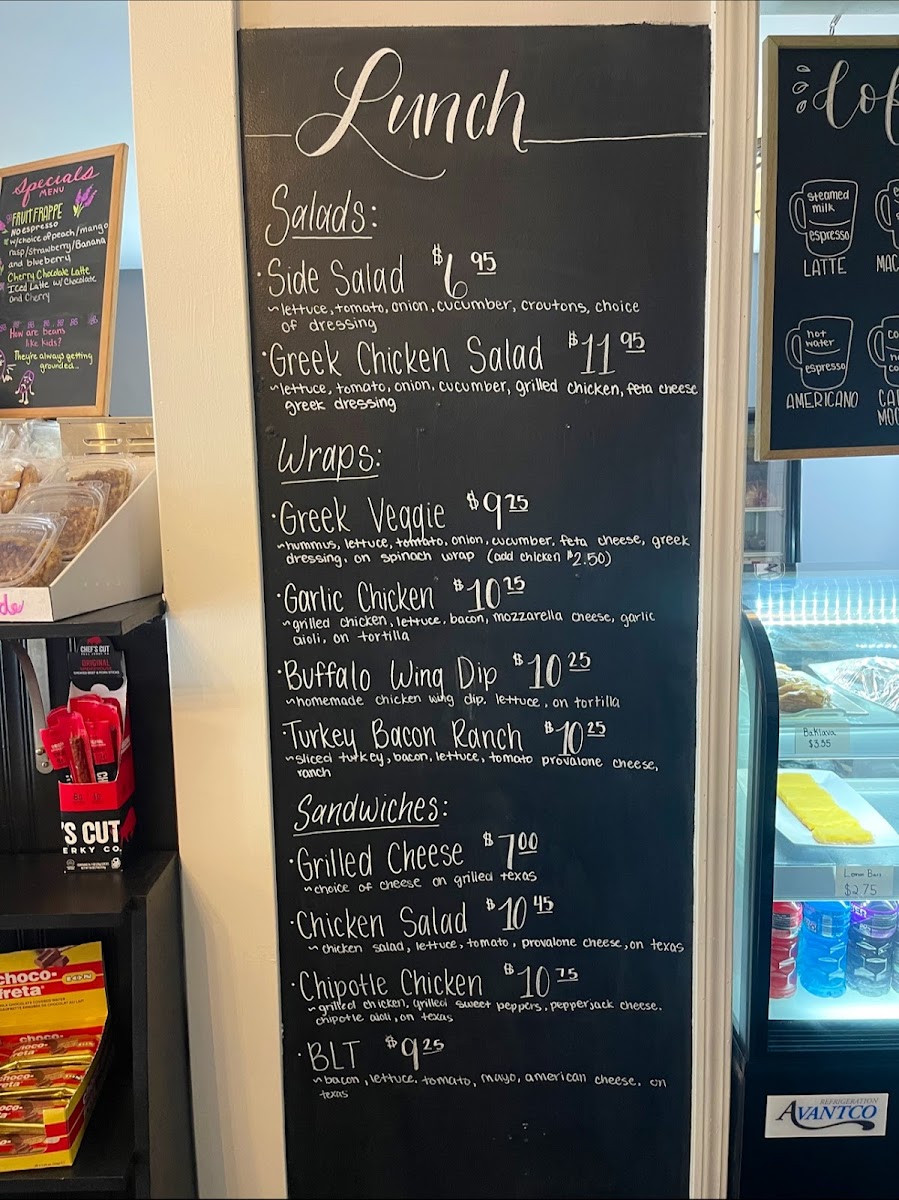 Specials
MENU
FRUIT FRAPPE
No espresso
w/choice of peach/mango
rasp/strawberry/Banana
and blueberry
Cherry Chocolate Latte
Iced Latte w/ Chocolate
and Cherry
How are beans
like kids?
They're always getting
grounded...
Lunch
Salads:
·Side Salad $6 95
~lettuce, tomato, onion, cucumber, croutons, choice
of dressing
·Greek Chicken Salad $11 95
~lettuce, tomato, onion, cucumber, grilled chicken, feta cheese
greek dressing
Wraps:
·Greek Veggie $9 25
~hummus, lettuce, tomato, onion, cucumber, feta cheese, greek
dressing, on spinach wrap (add chicken $2.50)
·Garlic Chicken $10 75
~grilled chicken, lettuce, bacon, mozzarella cheese, garlic
aioli, on tortilla
·Buffalo Wing Dip $10 25
~homemade chicken wing dip, lettuce, on tortilla
·Turkey Bacon Ranch $10 25
~sliced turkey, bacon, lettuce, tomato provalone cheese,
ranch
Sandwiches:
·Grilled Cheese $7 00
~choice of cheese on grilled texas
·Chicken Salad $10 45
~chicken salad, lettuce, tomato, provalone cheese, on texas
·Chipotle Chicken $10 75
~grilled chicken, grilled sweet peppers, pepperjack cheese,
chipotle aioli, on texas
·BLT $9 25
~bacon, lettuce, tomato, mayo, american cheese, on
texas
steamed
milk
espresso
LATTE
hot
water
espresso
AMERICANO
Baklava
$3.55
Lemon Bars
$2.75
REFRIGERATION
AVANTCO
CHEF'S CUT
ORIGINAL
'S CUT
ERKY CO.
choco-
freta
ION